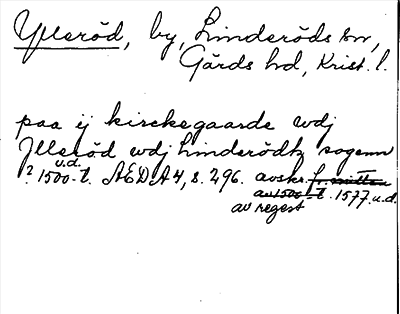 Ylleröd, by, Linderöds sn,
Gärds hd, Krist. l.
paa ij kirckegaarde wdj
Jlleröd wdj Linderödtz sogenn
u.d.
? 1500-t. ÆDA 4, s. 296. avskr. f. mitten
av 1500-t. 1577 u.d.
av regest